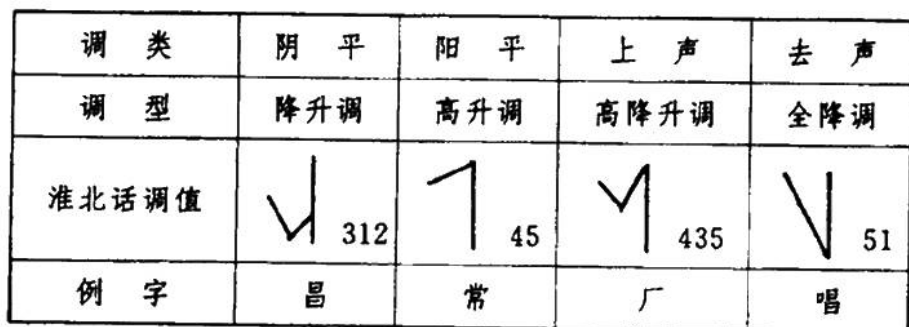 调类 阴平 阳平 上声 去声
调型 降升调 高升调 高降升调 全降调
淮北话调值 312 45 435 51
例字 昌 常 厂 唱